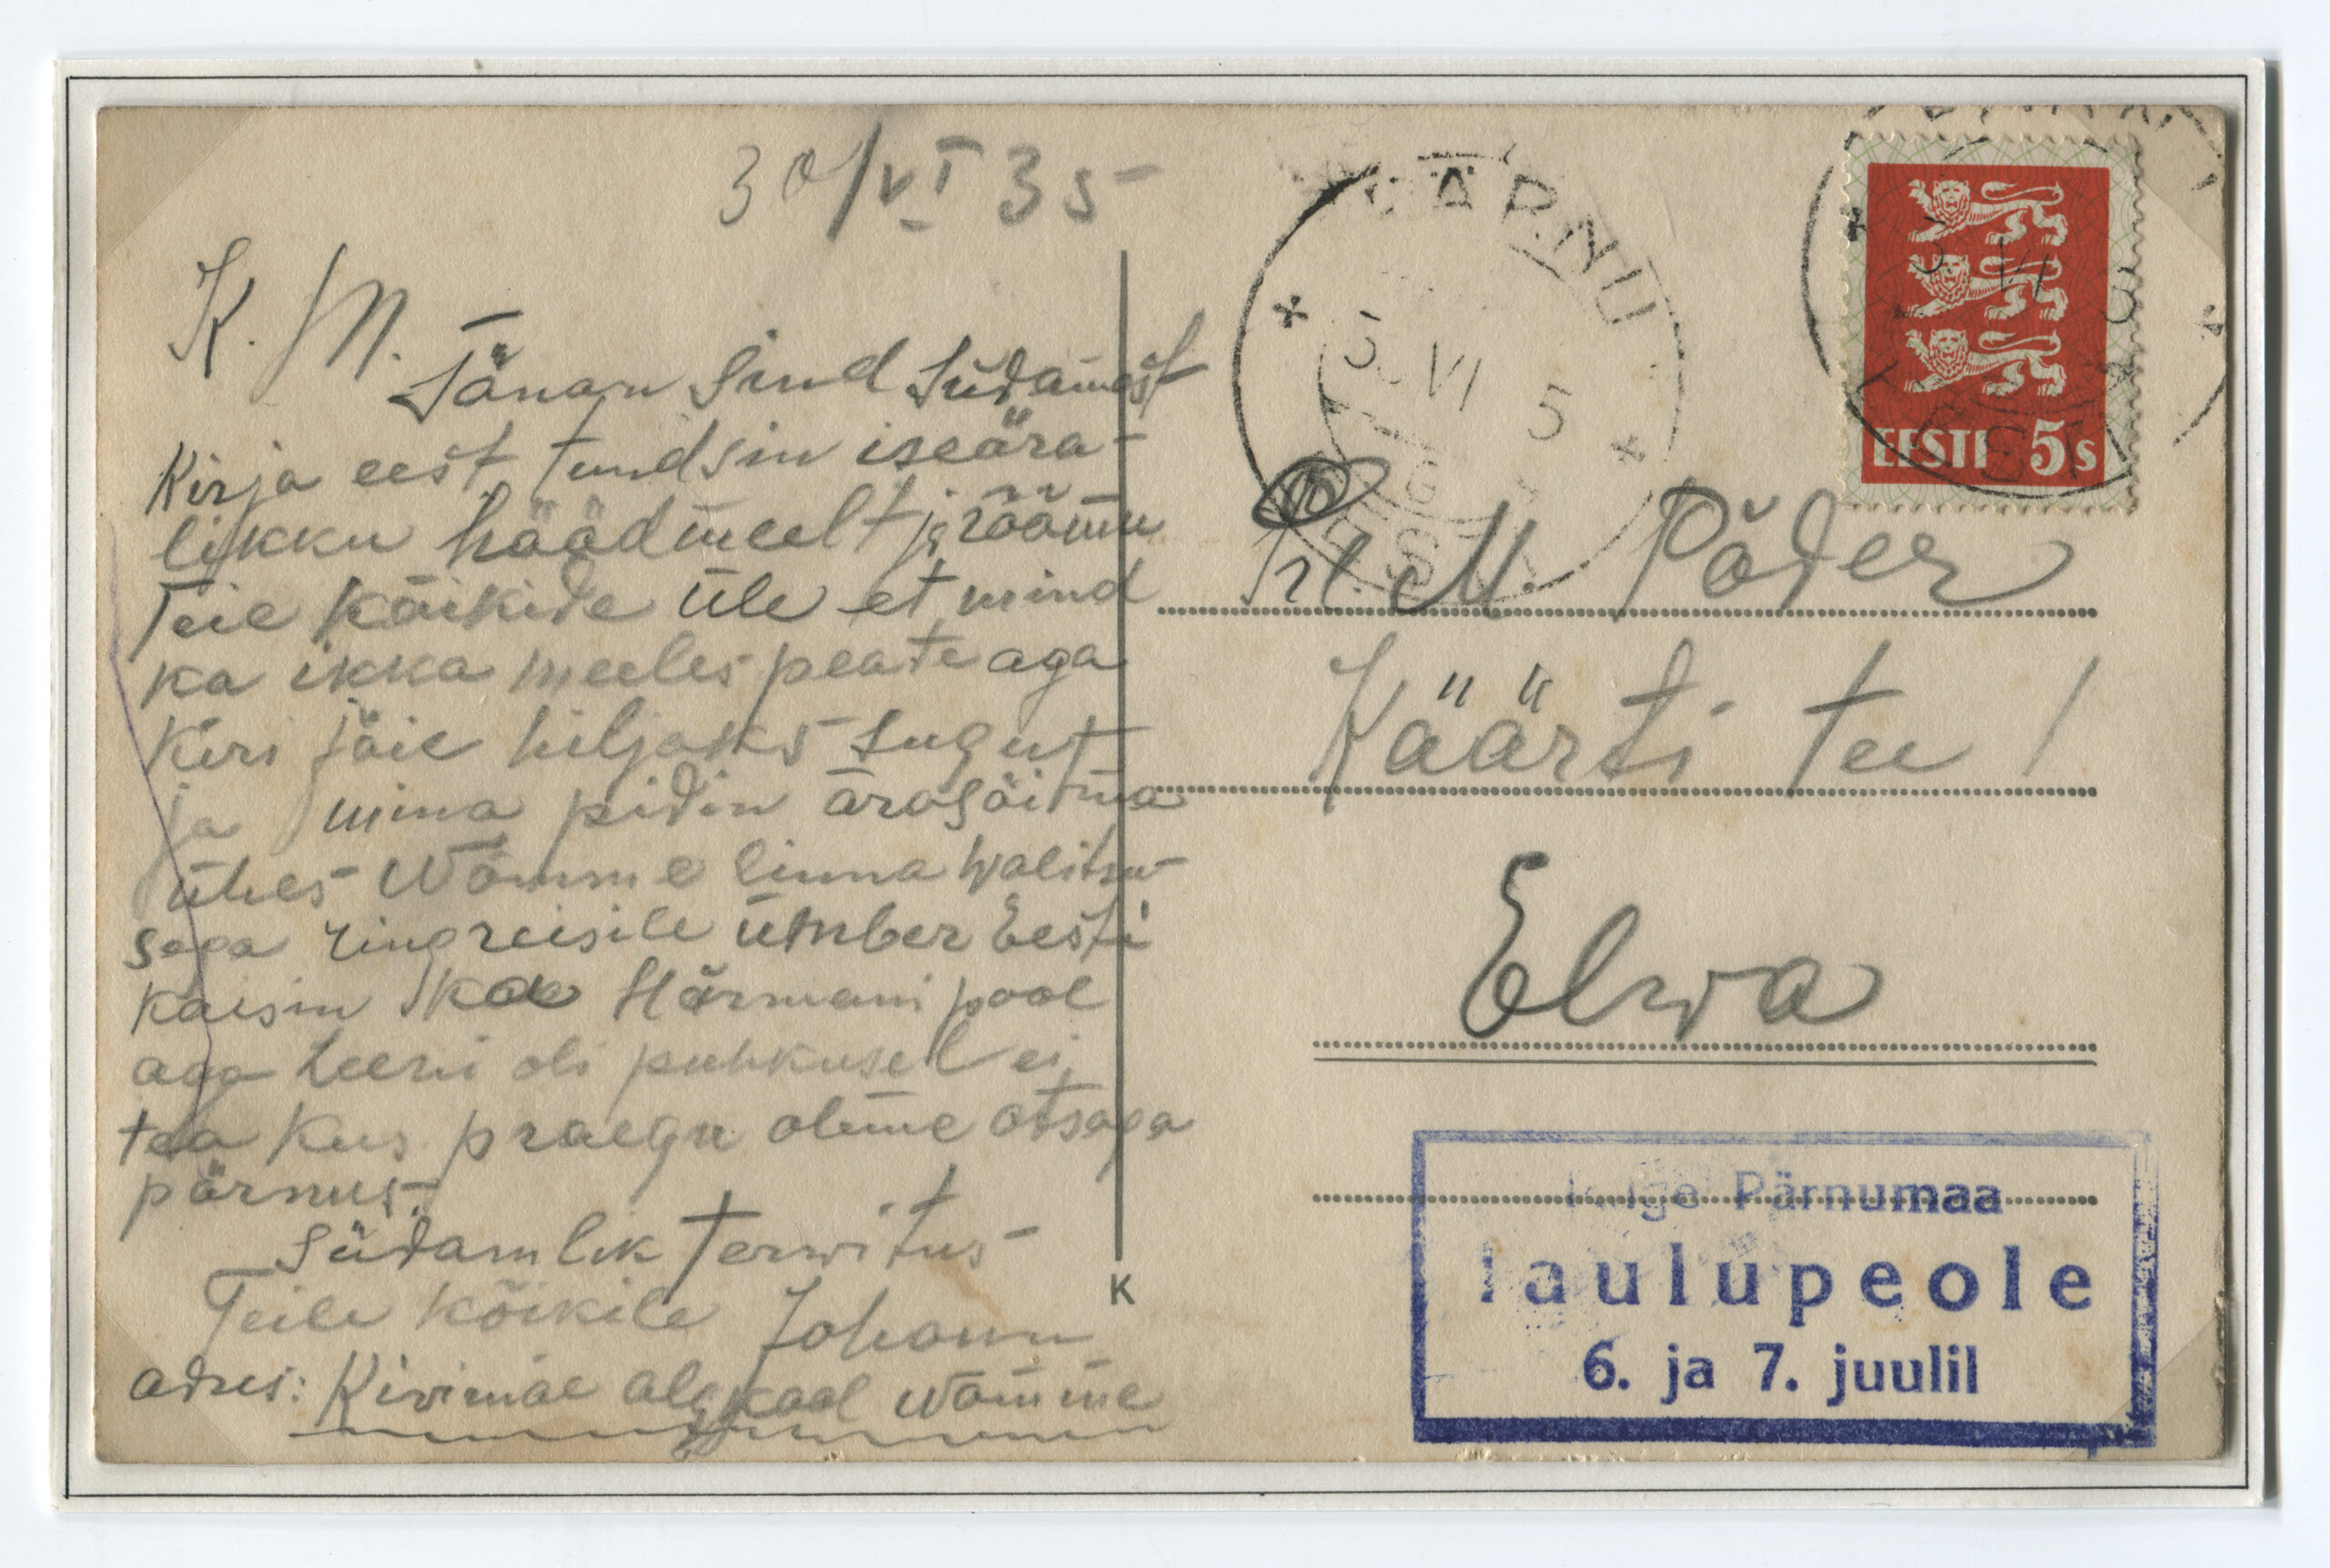 30/VI 35
K. M.
Tänan Sind Südamest
Kirja eest tundsin iseära-
likku häädmeelt ja rõõmu
Teie kõikide üle et mind
ka ikka meeles peate aga
Kiri jäie hiljaks sugut
ja mina pidin ärasõitma
ühes Wõmme linna walitsu-
sega ringreisile ümber Eesti
käisin ka Härmani pool
aga Leeni oli puhkusel ei
tea kus praegu oleme otsaga
pärnus
Südamlik terwitus
Teile kõikile Johann
adres: Kivimäe algkool Wõmme
K
PÄRNU
VI 5
EESTI
EESTI 5s
Prl. M. Põder
Käärti tee 1
Elwa
Pärnumaa
laulupeole
6. ja 7. juulil